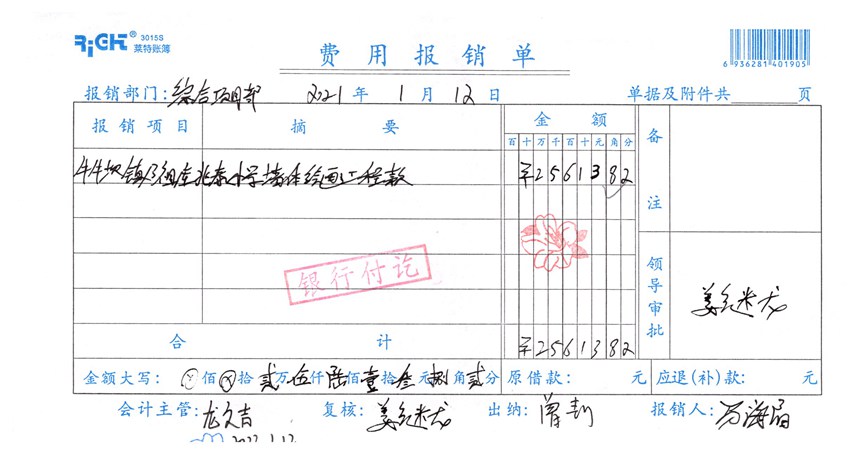 RiGHT® 3015S
莱特账簿
费用报销单
6 936281 401905
报销部门：综合项目部 2021 年 1 月 12 日 单据及附件共 页
报销项目 摘要 金额 备注
百十万千百十元角分
牛牛坝镇 小学墙体绘画工程款 ¥2561382
银行付讫
领导审批 姜 龙
合计 ¥2561382
金额大写：佰 拾 贰万伍仟陆佰壹拾叁元捌角贰分 原借款： 元 应退(补)款： 元
会计主管：龙文吉 复核：姜 龙 出纳： 报销人：